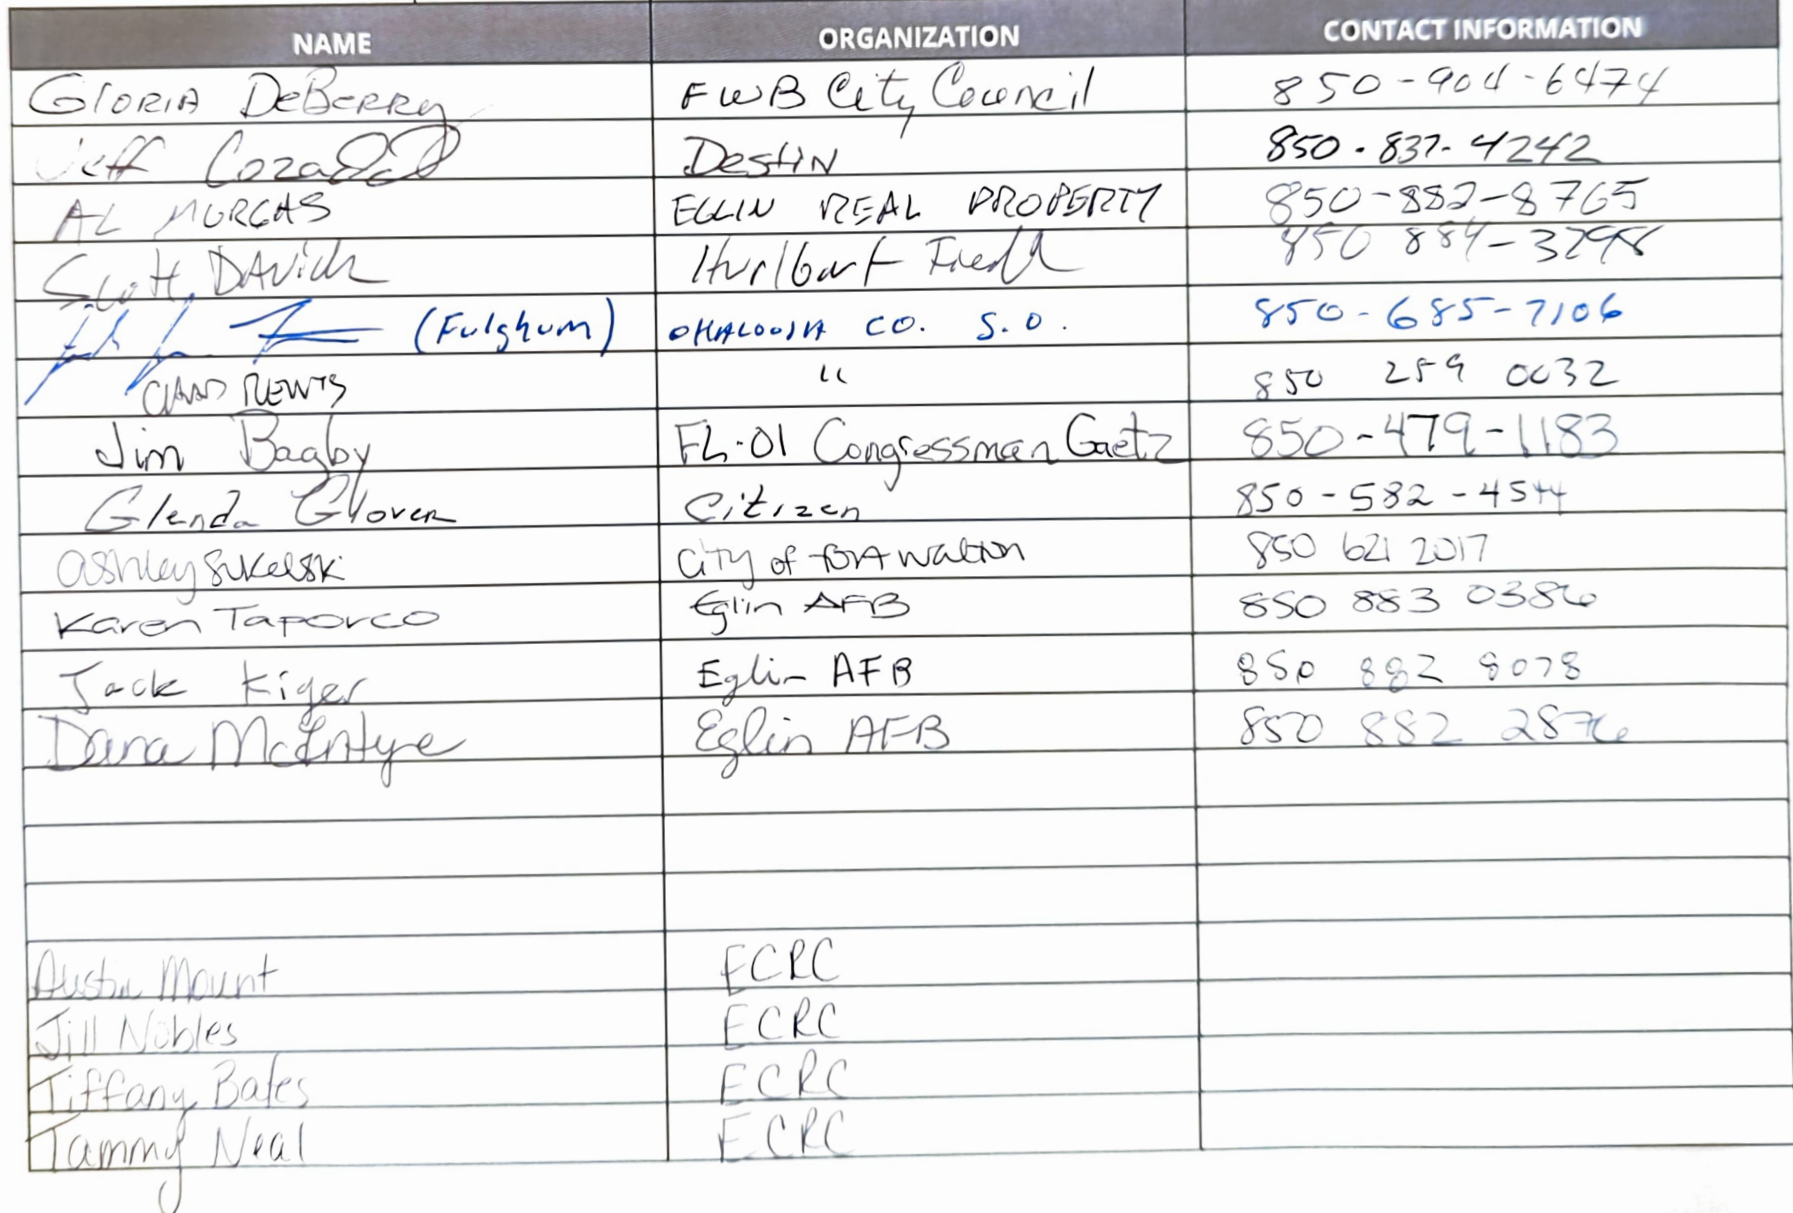 NAME ORGANIZATION CONTACT INFORMATION
GLORIA DeBERRy FWB City Council 850-904-6474
Jeff Cozad Destin 850-837-4242
AL MURGAS EGLIN REAL PROPERTY 850-882-8765
Scott DAVich Hurlburt Field 850 884-3298
(Fulghum) OKALOOSA CO. S.O. 850-685-7106
" 850 259 0032
Jim Bagby FL-01 Congressman Gaetz 850-479-1183
Glenda Glover Citizen 850-582-4544
Ashley Sukelski City of Fort Walton 850 621 2017
Karen Taporco Eglin AFB 850 883 0386
Jack Kiger Eglin AFB 850 882 8078
Dana McIntyre Eglin AFB 850 882 2876
Austin Mount ECRC
Jill Nobles ECRC
Tiffany Bates ECRC
Tammy Neal ECRC